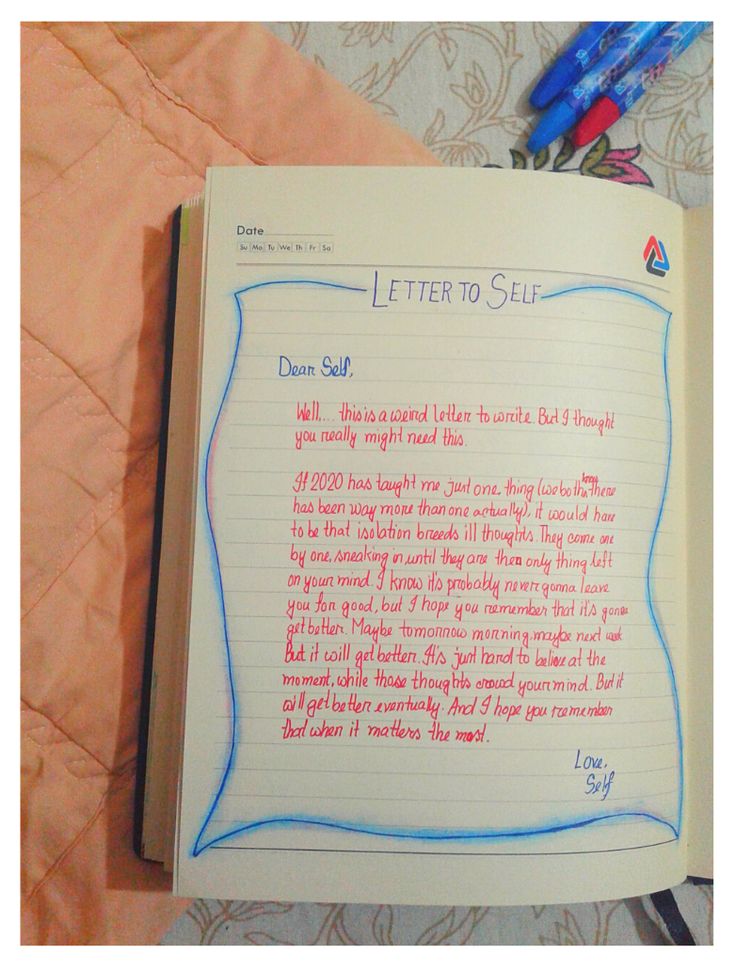 Date
Su Mo Tu We Th Fr Sa
LETTER TO SELF
Dear Self,
Well,... this is a weird letter to write. But I thought
you really might need this.
If 2020 has taught me just one thing (we both know there
has been way more than one actually), it would have
to be that isolation breeds ill thoughts. They come one
by one, sneaking in, until they are then only thing left
on your mind. I know it's probably never gonna leave
you for good, but I hope you remember that it's gonna
get better. Maybe tomorrow morning, maybe next week
But it will get better. It's just hard to believe at the
moment, while those thoughts crowd your mind. But it
will get better eventually. And I hope you remember
that when it matters the most.
Love,
Self